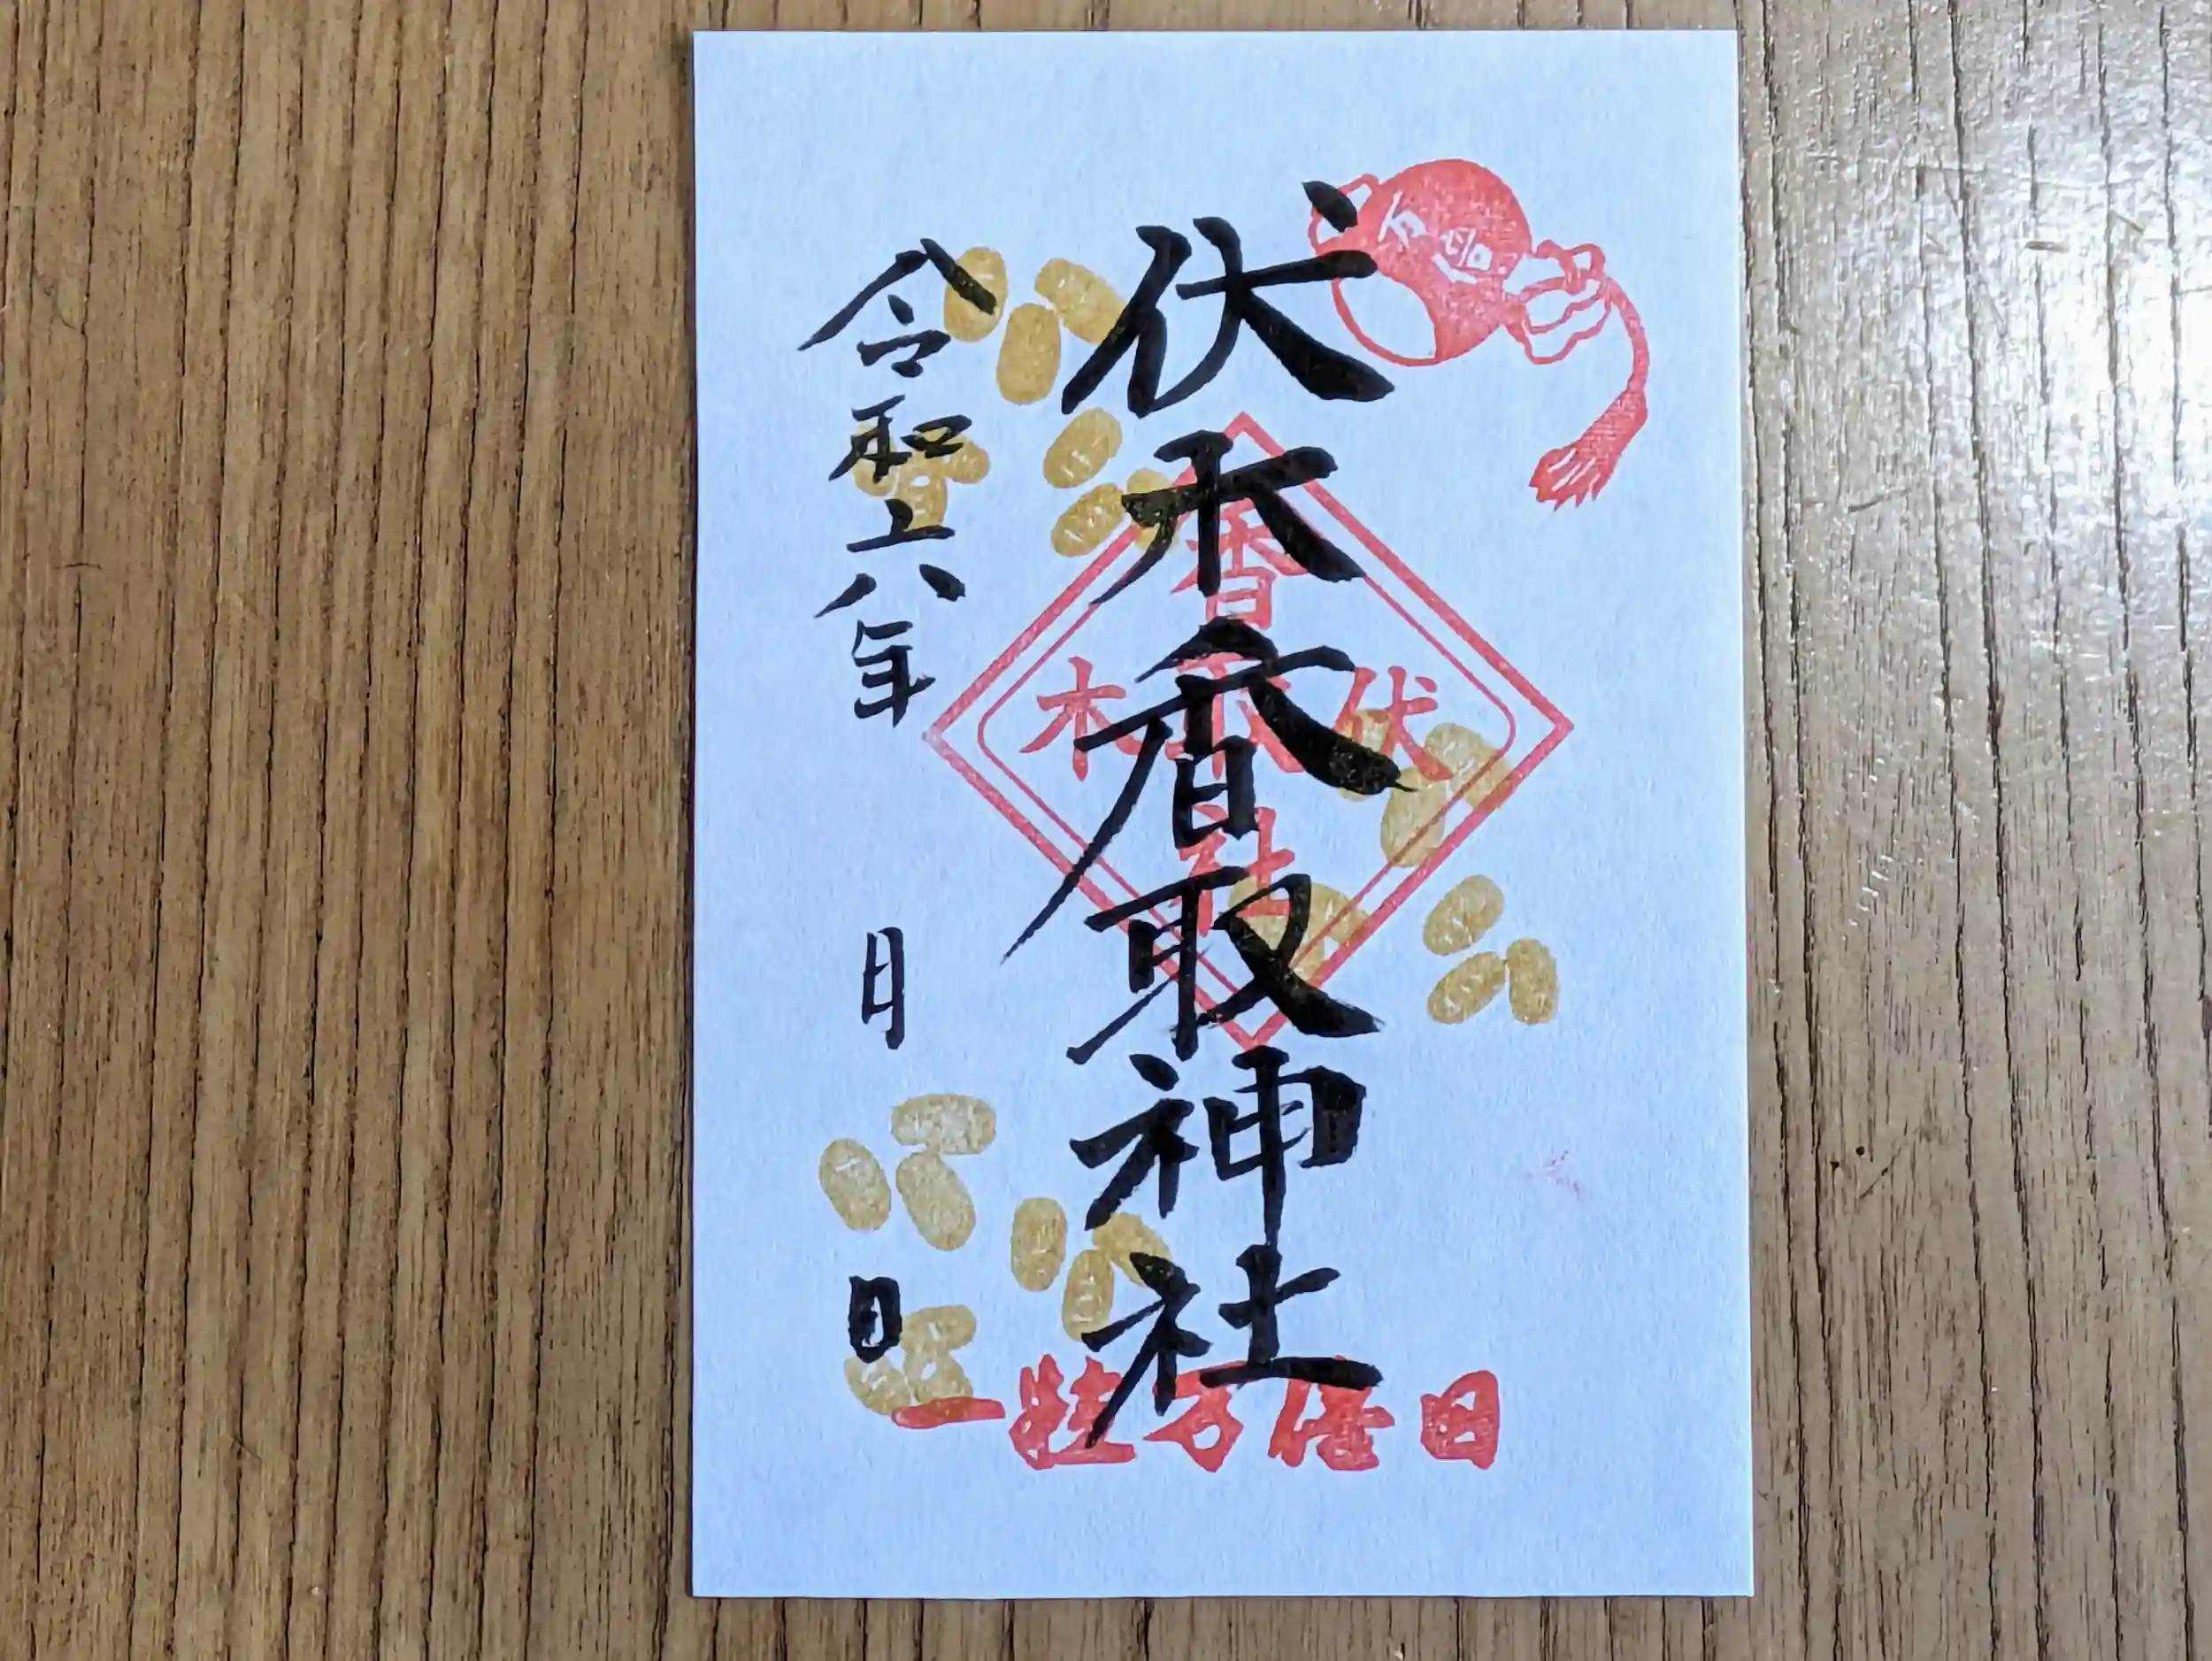 伏木香取神社
令和六年 月 日
香
伏取木
社
一粒万倍日